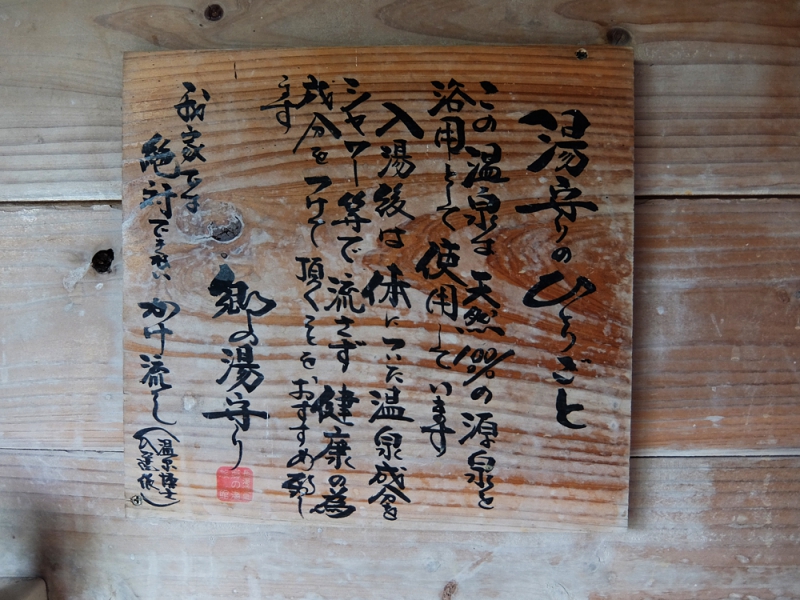 湯守りのひとりごと
この温泉は天然100%の源泉を
浴用として使用しています
入湯後は体についた温泉成分を
シャワー等で流さず健康の為
成分をつけて頂くことをおすすめ致し
ます
郷の湯守り
我家では絶対できないかけ流し